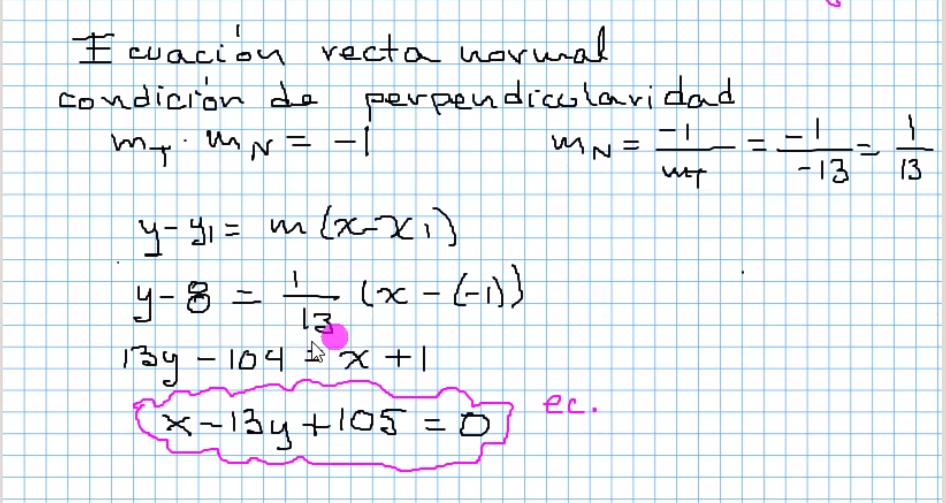 Ecuación recta normal
condición de perpendicularidad
m_T · m_N = -1 m_N = -1/m_T = -1/-13 = 1/13
y - y_1 = m (x - x_1)
y - 8 = 1/13 (x - (-1))
13y - 104 = x + 1
x - 13y + 105 = 0 ec.